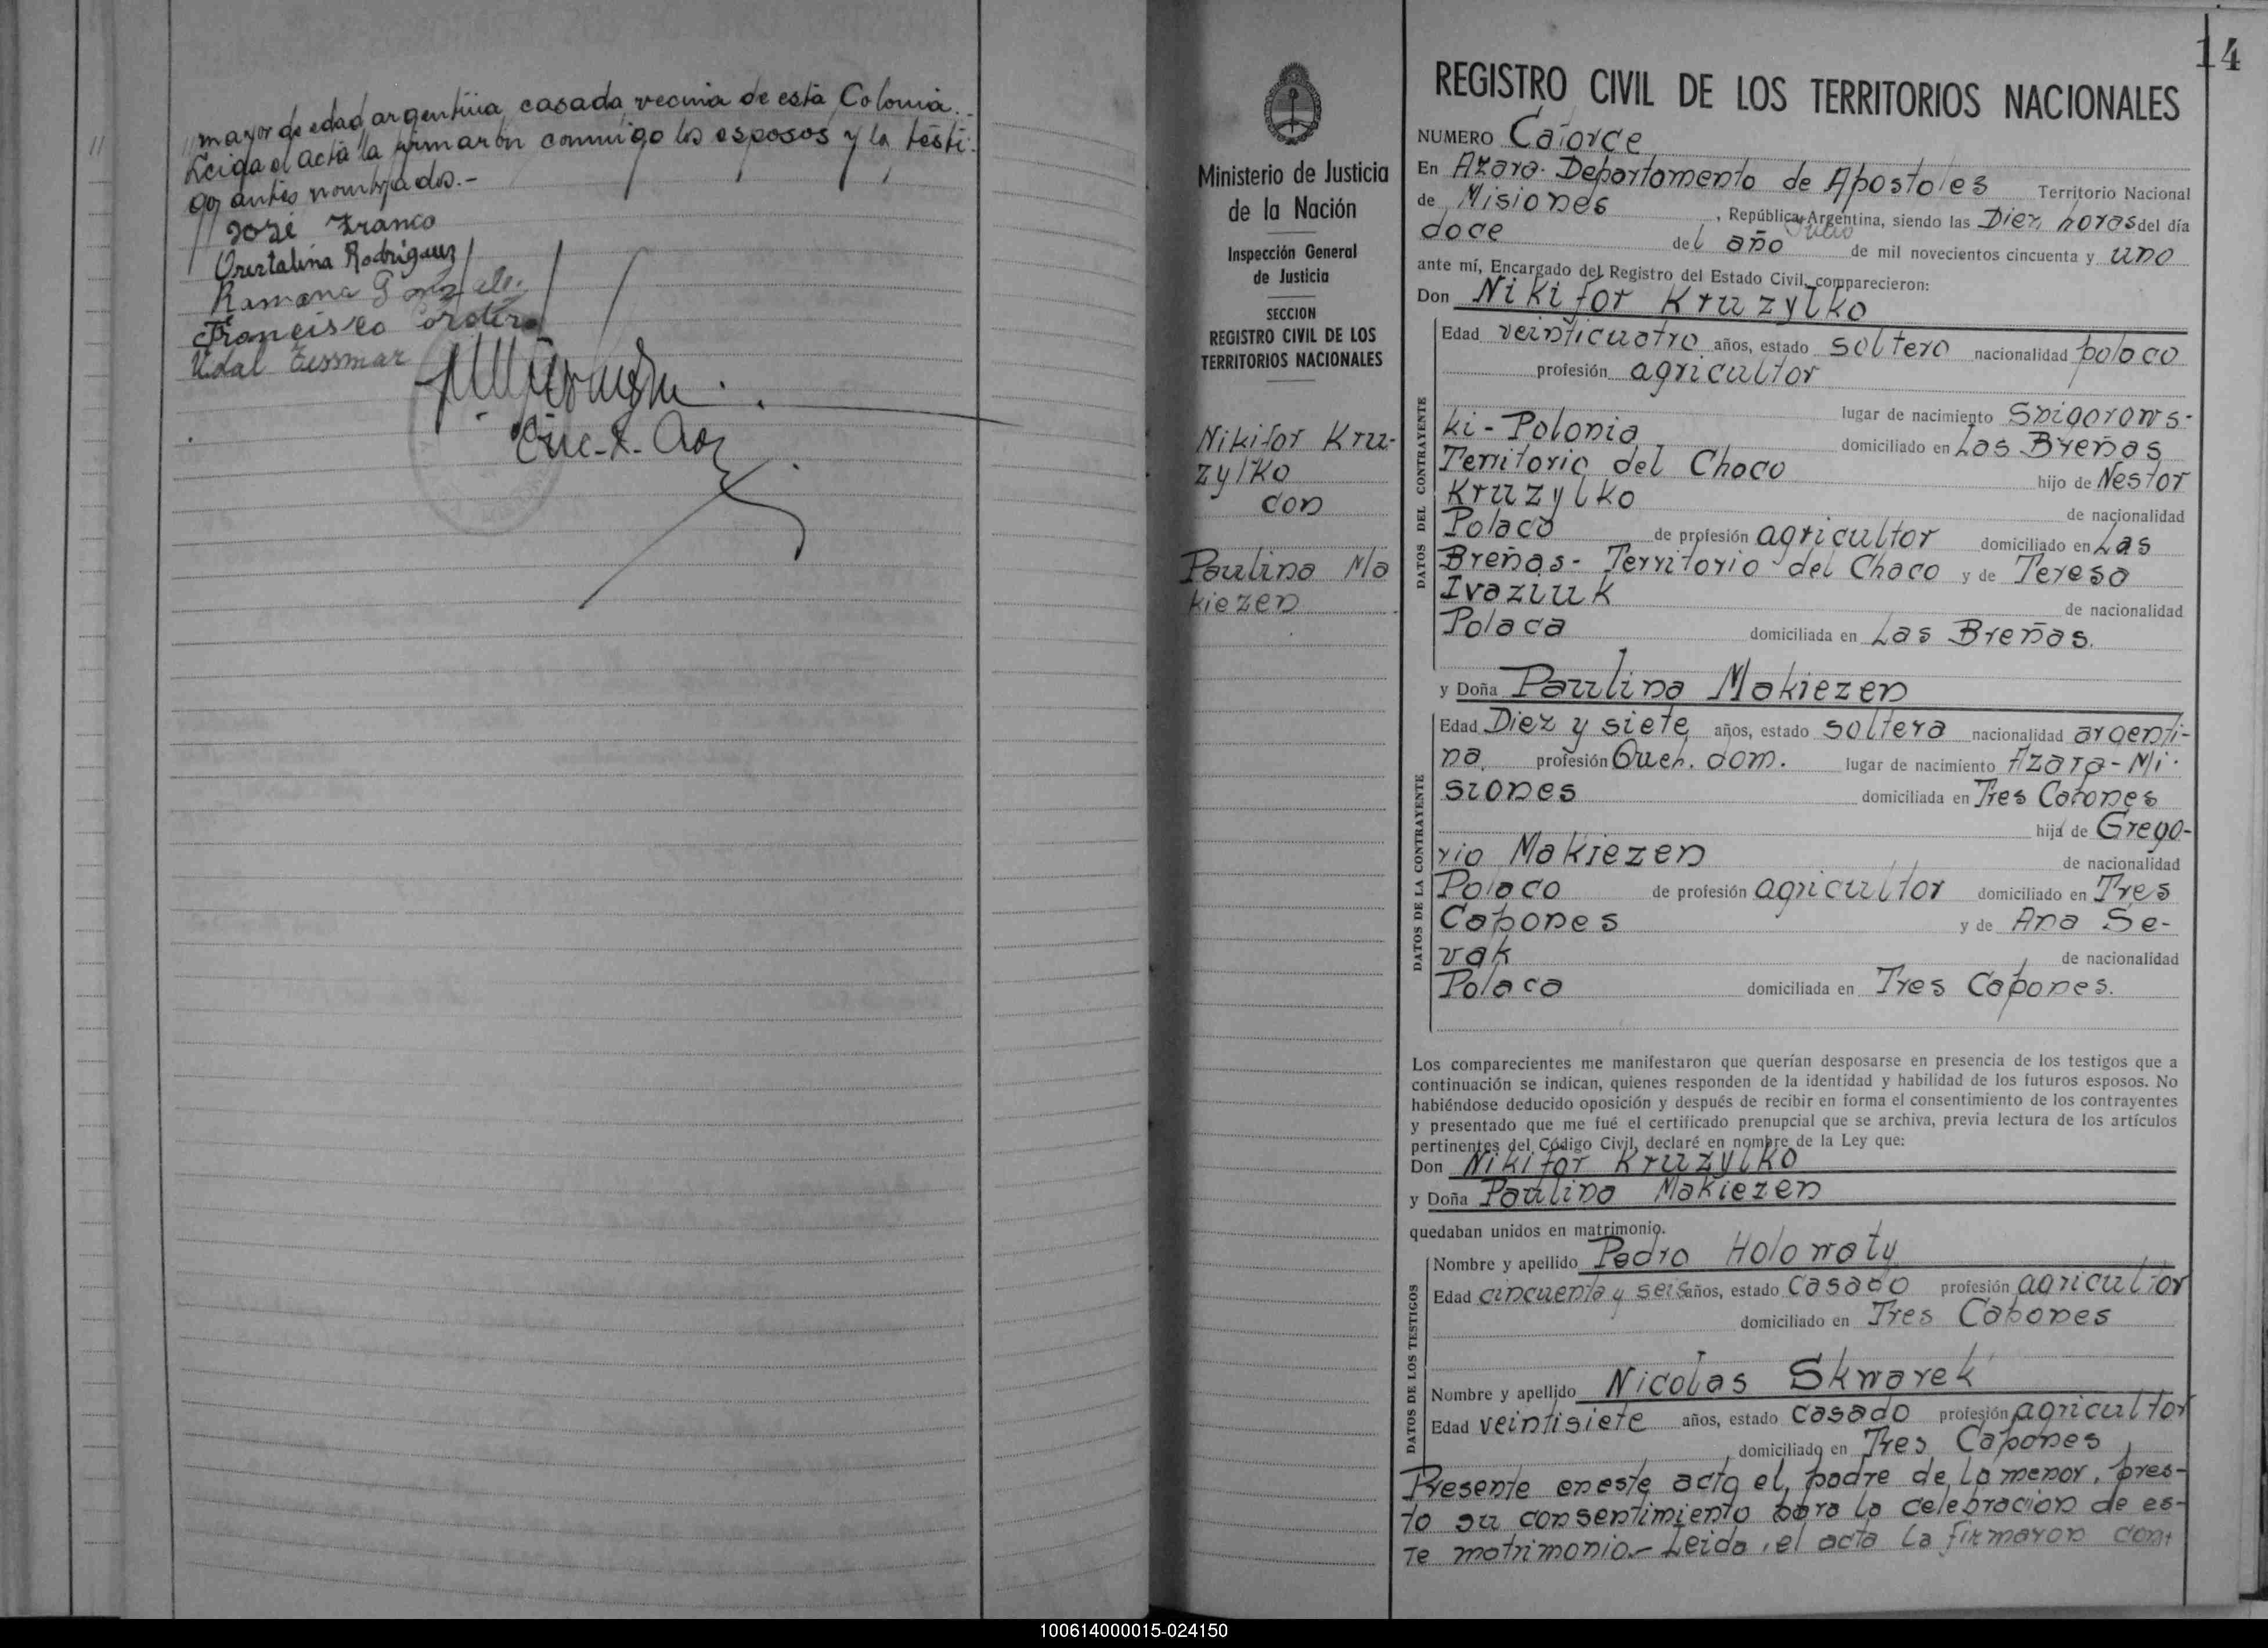 mayor de edad argentina, casada, vecina de esta Colonia.-
Leida el acta la firmaron conmigo los esposos y la testi-
gos antes nombrados.-
José Franco
Rodriguez
Ramona Gonzalez
Francisco Cordero
Vidal Zissmar
Enc. R.
14
REGISTRO CIVIL DE LOS TERRITORIOS NACIONALES
Ministerio de Justicia
de la Nación
Inspección General
de Justicia
SECCION
REGISTRO CIVIL DE LOS
TERRITORIOS NACIONALES
Nikifor Kru-
zylko
con
Paulina Ma
kiezen
NUMERO Catorce
En Azara. Departamento de Apostoles Territorio Nacional
de Misiones, República Argentina, siendo las Diez horas del día
doce del año Julio de mil novecientos cincuenta y uno
ante mí, Encargado del Registro del Estado Civil, comparecieron:
Don Nikifor Kruzylko
DATOS DEL CONTRAYENTE
Edad veinticuatro años, estado soltero nacionalidad polaco
profesión agricultor
lugar de nacimiento Snigorows-
ki - Polonia domiciliado en Las Breñas
Territorio del Chaco hijo de Nestor
Kruzylko de nacionalidad
Polaco de profesión agricultor domiciliado en Las
Breñas - Territorio del Chaco y de Teresa
Ivaziuk de nacionalidad
Polaca domiciliada en Las Breñas.
y Doña Paulina Makiezen
DATOS DE LA CONTRAYENTE
Edad Diez y siete años, estado soltera nacionalidad argenti-
na. profesión Queh. dom. lugar de nacimiento Azara - Mi-
siones domiciliada en Tres Capones
hija de Grego-
rio Makiezen de nacionalidad
Polaco de profesión agricultor domiciliado en Tres
Capones y de Ana Se-
vak de nacionalidad
Polaca domiciliada en Tres Capones.
Los comparecientes me manifestaron que querían desposarse en presencia de los testigos que a
continuación se indican, quienes responden de la identidad y habilidad de los futuros esposos. No
habiéndose deducido oposición y después de recibir en forma el consentimiento de los contrayentes
y presentado que me fué el certificado prenupcial que se archiva, previa lectura de los artículos
pertinentes del Código Civil, declaré en nombre de la Ley que:
Don Nikifor Kruzylko
y Doña Paulina Makiezen
quedaban unidos en matrimonio.
DATOS DE LOS TESTIGOS
Nombre y apellido Pedro Holowaty
Edad cincuenta y seis años, estado casado profesión agricultor
domiciliado en Tres Capones
Nombre y apellido Nicolas Skwarek
Edad veintisiete años, estado casado profesión agricultor
domiciliado en Tres Capones
Presente en este acto el padre de la menor, pres-
to su consentimiento para la celebracion de es-
te matrimonio.- Leida el acta la firmaron con-
100614000015-024150